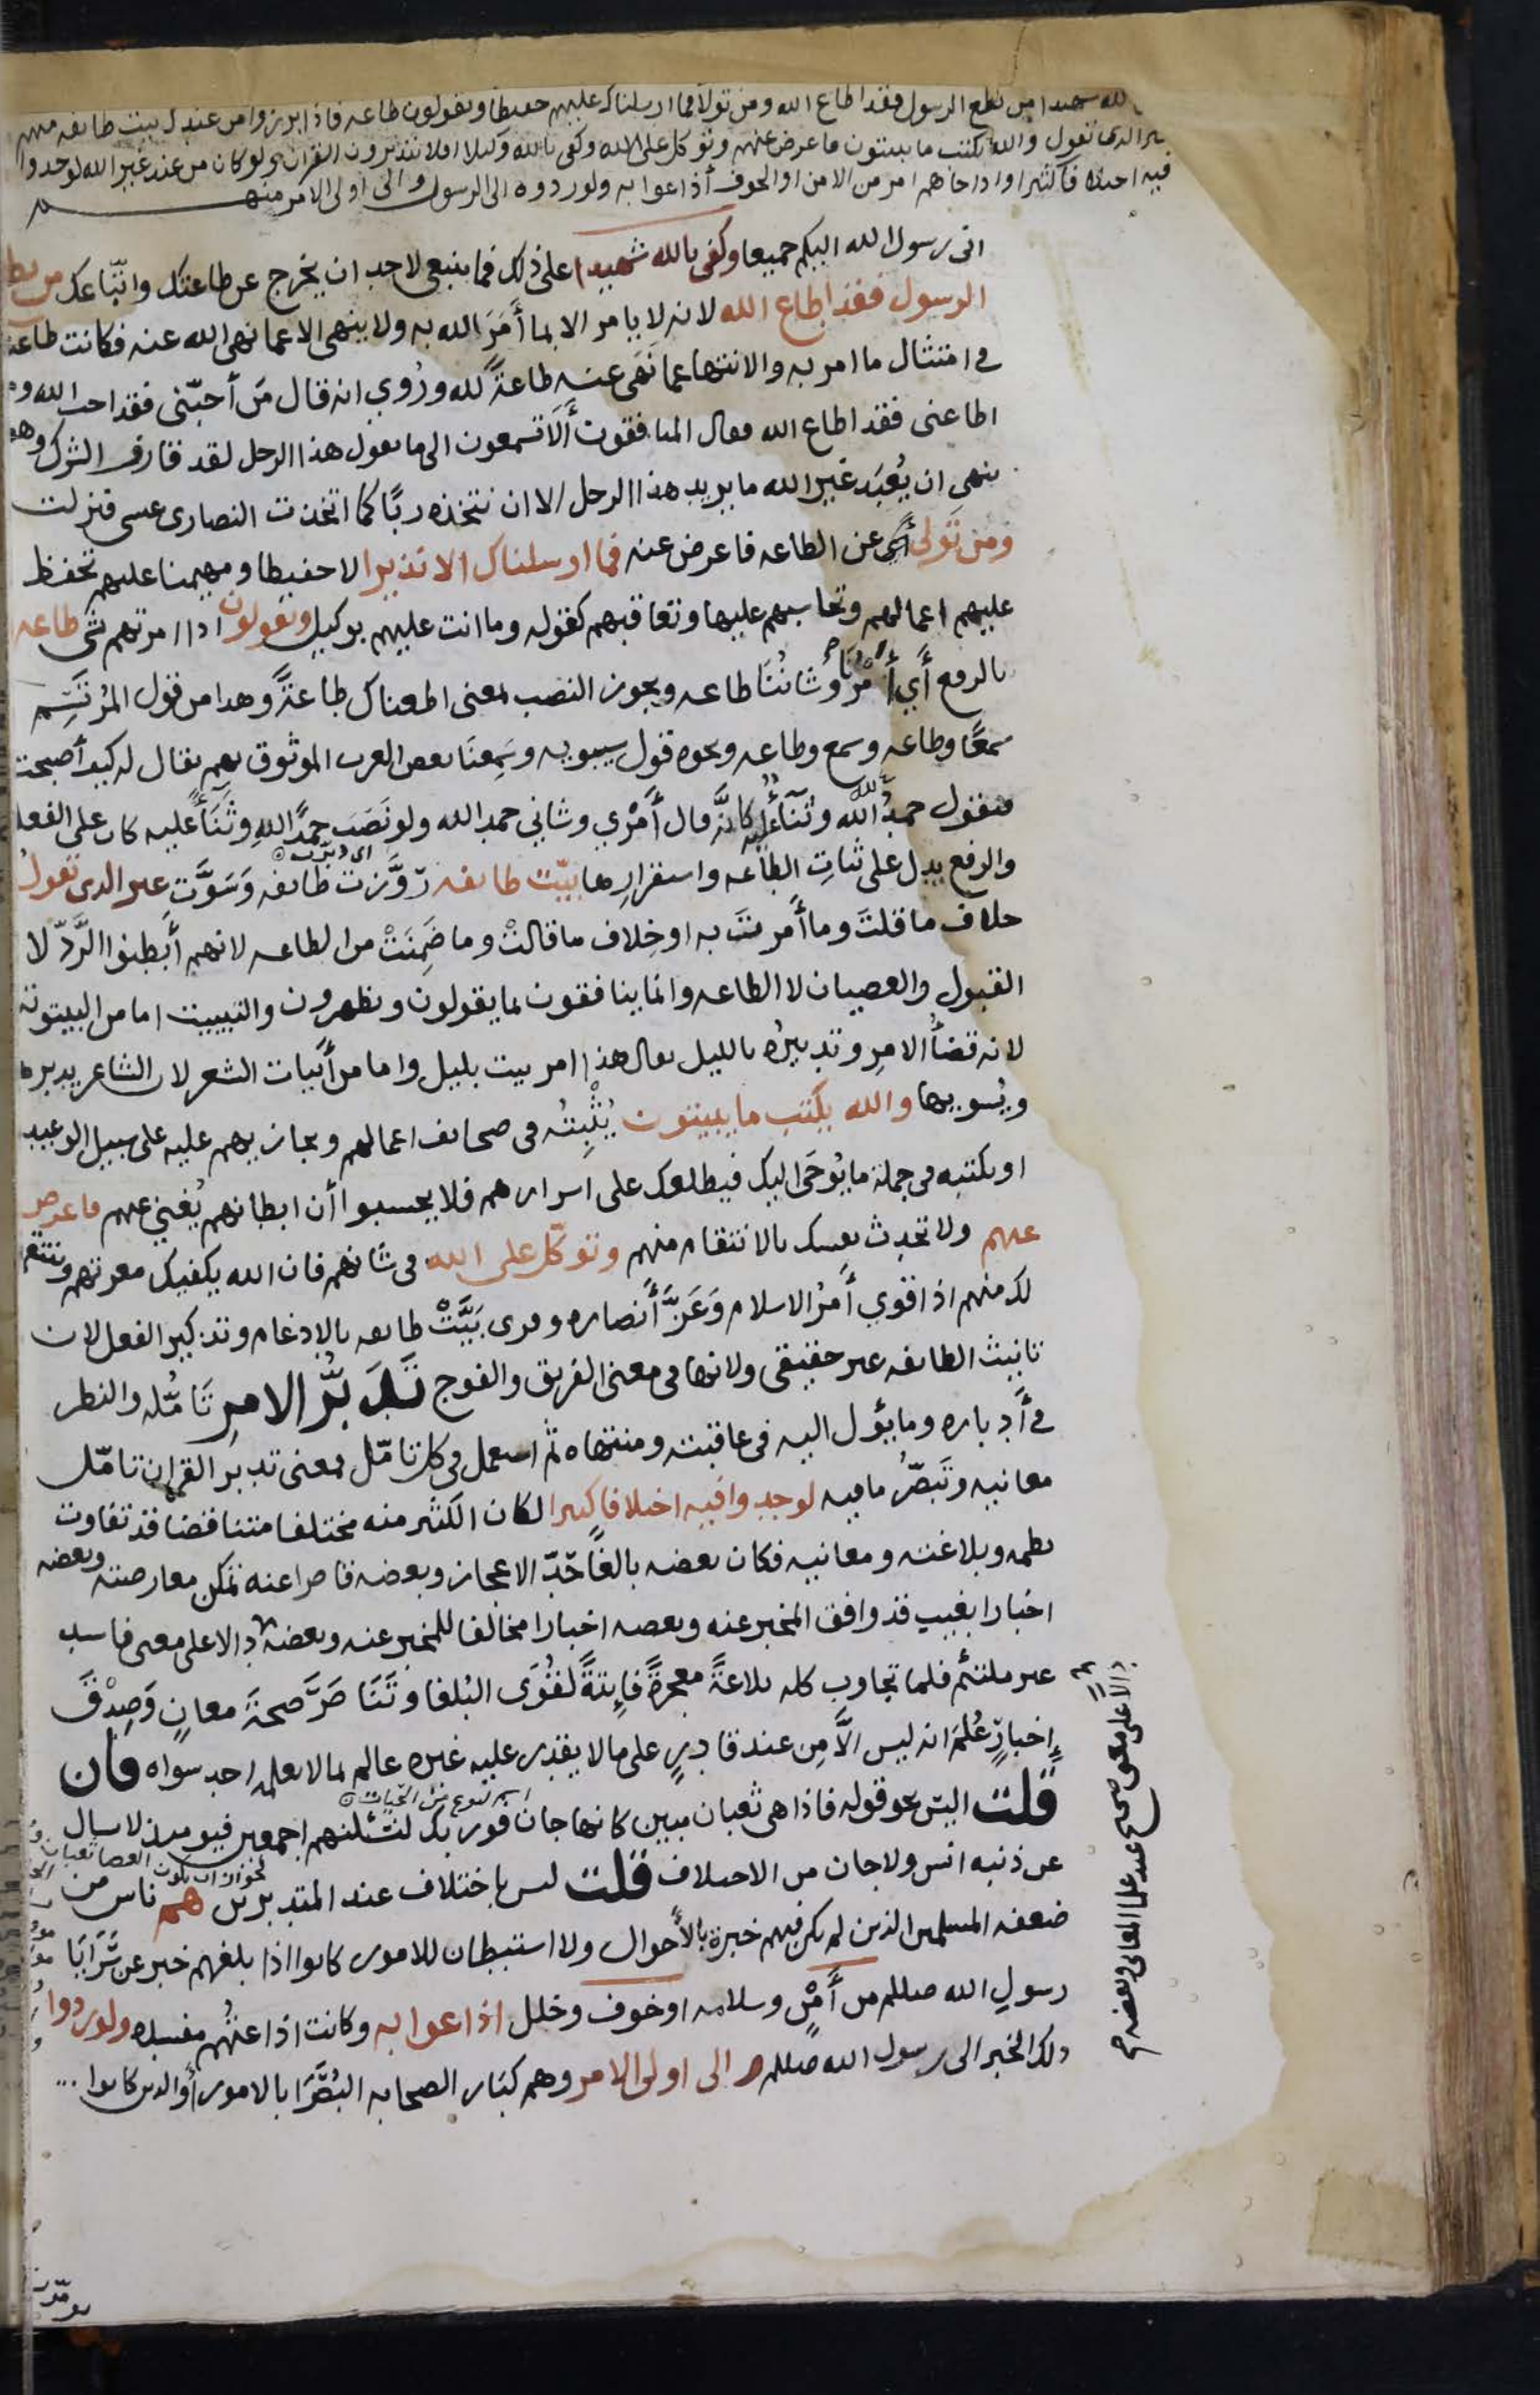 لله شهيدا من يطع الرسول فقد اطاع الله ومن تولا فما ارسلناك عليهم حفيظا ويقولون طاعه فاذا برزوا من عندك بيت طايفه منهم
غير الذى تقول والله يكتب ما يبيتون فاعرض عنهم وتوكل على الله وكفى بالله وكيلا افلا يتدبرون القران ولو كان من عند غير الله لوجدوا
فيه اختلافا كثيرا واذا جاهم امر من الامن او الخوف أذاعوا به ولو ردوه الى الرسول والى اولى الامر منهم
انى رسول الله اليكم جميعا وكفى بالله شهيدا على ذلك فما ينبغى لاحد ان يخرج عن طاعتك واتباعك من يطع
الرسول فقد اطاع الله لانه لا يامر الا بما أَمَرَ الله به ولا ينهى الا عما نهى الله عنه فكانت طاعته
في امتثال ما امر به والانتها عما نَهَى عنه طاعةً لله ورُوي انه قال مَن أحبّنى فقد احب الله ومن
اطاعنى فقد اطاع الله فقال المنافقون أَلَا تسمعون الى ما يقول هذا الرجل لقد قارف الشرك وهو
ينهى ان يُعْبَد غير الله ما يريد هذا الرجل الا ان نتخذه ربًا كما اتخذت النصارى عيسى فنزلت
ومن تَولى أي عن الطاعه فاعرض عنه فما ارسلناك الا نذيرا لا حفيظا ومهيمنا عليهم تحفظ
عليهم اعمالهم وتحاسبهم عليها وتعاقبهم كقوله وما انت عليهم بوكيل ويقولون اذا امرتهم بشى طاعه
بالرفع أَي أَمْرُنَا وشانُنَا طاعه ويجوز النصب بمعنى اطعناك طاعةً وهذا من قول المُرْتَسِم
سمعًا وطاعه وسمع وطاعه ونحوه قول سيبويه وسَمِعنَا بعض العرب الموثوق بهم يقال له كيف أصبحت
فيقول حمدُ الله وثنآءُ عليه كانَّه قال أَمْرِي وشانِي حمد الله ولو نَصَب حمدَ اللهِ وثَنَاءً عليه كان على الفعل
والرفع يدل على ثباتِ الطاعه واستقرارِها بيّت طايفه زوَّرت طايفه وَسَوَّت غير الذى تقول
اى دبّرت
خلاف ما قلتَ وما أَمرتَ به او خِلاف ما قالتْ وما ضَمِنَتْ من الطاعه لانهم أَبطنوا الرَّدّ لا
القبول والعصيان لا الطاعه وانما ينافقون بما يقولون ويظهرون والتبييت اما من البيتوتة
لانه قضاءُ الامرِ وتدبيرُه بالليل يقال هذا امر بيت بليل واما من أَبيات الشعر لان الشاعر يدبرها
ويُسويها والله يكتب ما يبيتون يُثْبِتُه فى صحايف اعمالهم ويجازيهم عليه على سبيل الوعيد
او يكتبه فى جملة ما يُوحَى اليك فيطلعك على اسرارهم فلا يحسبوا أن ابطانهم يُغني عنهم فاعرض
عنهم ولا تحدث نفسك بالانتقام منهم وتوكّل على الله فى شانهم فان الله يكفيك معرتهم وينتقم
لك منهم اذا قوي أَمرُ الاسلام وَعَزَّ أَنصاره وقرى بَيَّتْ طايفه بالادغام وتذكير الفعل لان
تانيث الطايفه غير حقيقى ولانها فى معنى الفريق والفوج تَدَبُّر الامرِ تَامُّله والنظر
في أَدباره وما يؤل اليه فى عاقبته ومنتهاه ثم استعمل فى كل تامّل فمعنى تدبر القران تامّل
معانيه وتَبَصُّر ما فيه لوجدوا فيه اختلافا كثيرا لكان الكثير منه مختلفا متناقضا قد تفاوت
نظمه وبلاغته ومعانيه فكان بعضه بالغًا حَدّ الاعجاز وبعضه قاصرا عنه تمكن معارضته وبعضه
اخبارا بغيب قد وافق المخبر عنه وبعضه اخبارا مخالفا للمخبر عنه وبعضه دالا على معنى فاسد
غير ملتئم فلما تجاوب كله بلاغةً معجزةً فايتةً لقُوَى البُلغا وتَنَاصَرَ صحةَ معانٍ وَصِدْقَ
إِخبارٍ عُلمَ انه ليس الَّا مِن عند قادرٍ على ما لا يقدر عليه غيره عالم بما لا يعلمه احد سواه فان
قلت اليس نحو قوله فاذا هى ثعبان مبين كانها جان فوربك لنسئلنهم اجمعين فيوميذ لا يسال
اسم لنوع من الحيات
عن ذنبه انس ولا جان من الاختلاف قلت ليس باختلاف عند المتدبرين هم ناس من
ضعفه المسلمين الذين لم يكن فيهم خبرة بالأَحوال ولا استبطان للامور كانوا اذا بلغهم خبر عن سَّرَايَا
رسولِ الله صللم من أَمْنٍ وسلامه او خوف وخلل اذاعوا به وكانت اذاعتُهم مفسده ولو ردوا
ذلك الخبر الى رسول الله صللم والى اولى الامر وهم كبَار الصحابه البُصَرَا بالامور أو الذين كانوا
دالا على معنى صحيح عند علما المعانى وبعضه